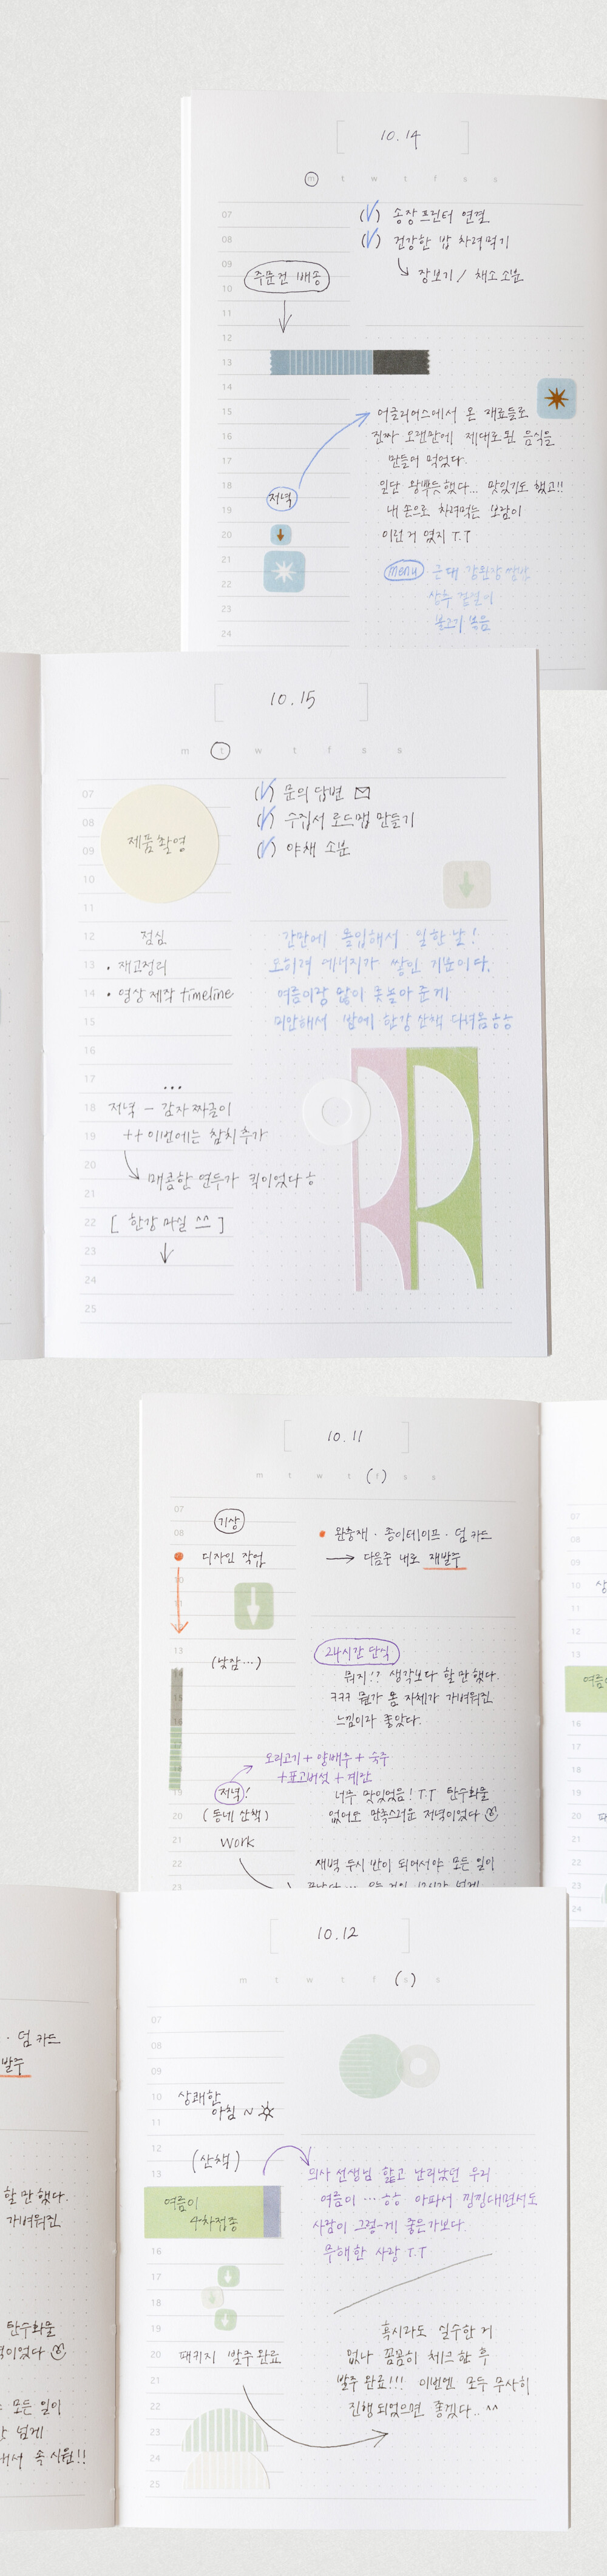 10.14
m t w t f s s
07
08
09
10
11
12
13
14
15
16
17
18
19
20
21
22
23
24
(✓) 송장 프린터 연결
(✓) 건강한 밥 차려먹기
장보기 / 채소 소분
주문건 배송
저녁
어글리어스에서 온 재료들로
진짜 오랜만에 제대로 된 음식을
만들어 먹었다.
일단 왕뿌듯했다... 맛있기도 했고!!
내 손으로 차려먹는 보람이
이런거 였지 T.T
menu 근대 강된장 쌈밥
상추 겉절이
불고기 볶음
10.15
m t w t f s s
07
08
09
10
11
12
13
14
15
16
17
18
19
20
21
22
23
24
25
(✓) 문의 답변
(✓) 수집서 로드맵 만들기
(✓) 야채 소분
제품 촬영
점심
• 재고정리
• 영상 제작 timeline
간만에 몰입해서 일한 날!
오히려 에너지가 쌓인 기분이다.
여름이랑 많이 못놀아 준게
미안해서 밤에 한강 산책 다녀옴ㅎㅎ
...
저녁 - 감자 짜글이
++ 이번에는 참치 추가
매콤한 연두가 킥이었다ㅎ
[ 한강 마실 ^^ ]
10.11
m t w t (f) s s
07
08
10
13
15
19
20
21
22
23
기상
디자인 작업
• 완충재 · 종이테이프 · 덤 카드
→ 다음주 내로 재발주
(낮잠...)
24시간 단식
뭐지!? 생각보다 할 만 했다.
ㅋㅋㅋ 뭔가 몸 자체가 가벼워진
느낌이라 좋았다.
오리고기 + 양배추 + 숙주
+ 표고버섯 + 계란
저녁!
(동네 산책)
work
너무 맛있었음! T.T 탄수화물
없어도 만족스러운 저녁이었다
새벽 두시 반이 되어서야 모든 일이
07
08
09
10
11
12
13
16
18
19
20
21
22
23
24
여름이
10.12
m t w t f (s) s
07
08
09
10
11
12
13
16
17
18
19
20
21
22
23
24
25
상쾌한
아침 ~
(산책)
여름이
4차접종
패키지 발주 완료
의사 선생님 핥고 난리났던 우리
여름이 ... ㅎㅎ 아파서 낑낑대면서도
사람이 그렇~게 좋은가보다.
무해한 사랑 T.T
혹시라도 실수한 거
없나 꼼꼼히 체크한 후
발주 완료!!! 이번엔 모두 무사히
진행 되었으면 좋겠다.. ^^
· 덤 카드
발주
할 만 했다.
가벼워진
탄수화물
모든 일이
넘게
속 시원!!